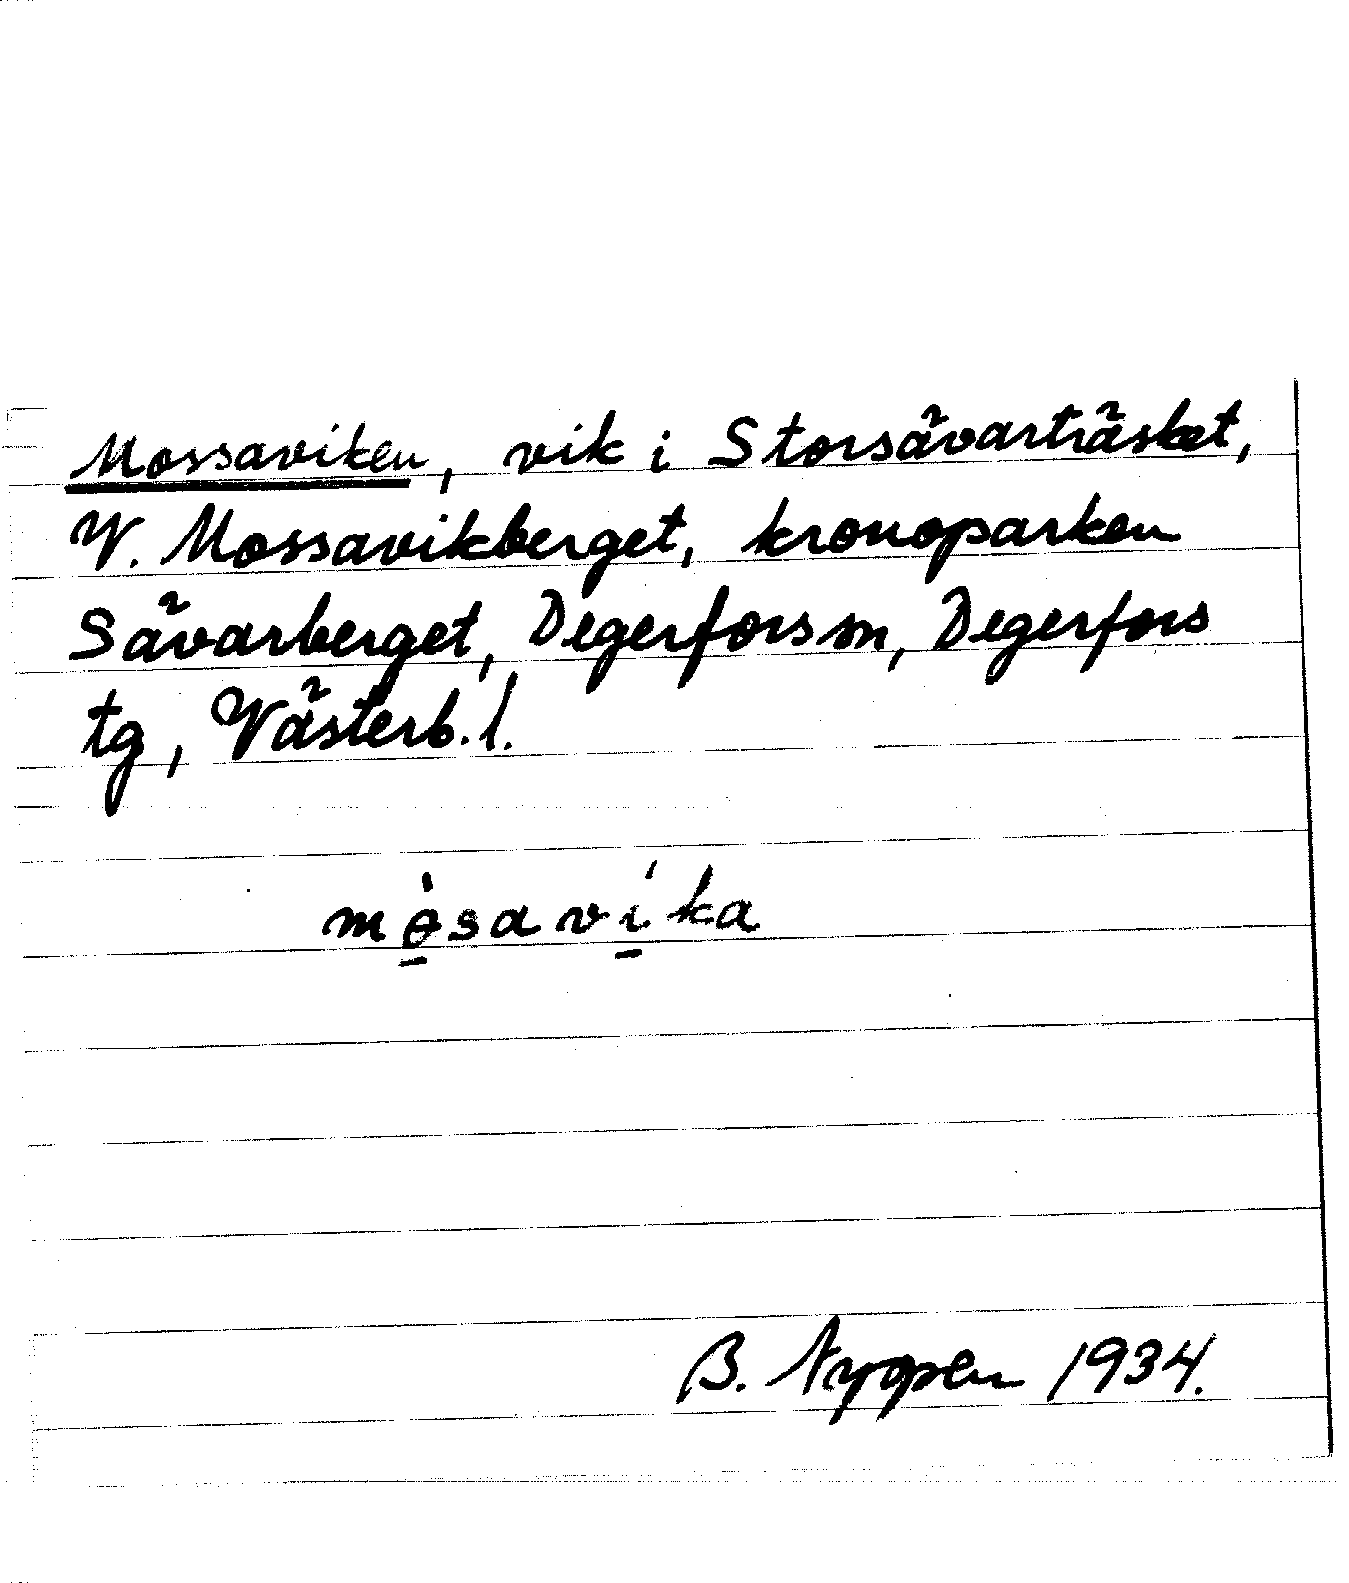 Mossaviken, vik i Storsävarträsket,
V. Mossavikberget, kronoparken
Sävarberget, Degerfors sn, Degerfors
tg, Västerb. l.
mòsavíka
B. 1934.